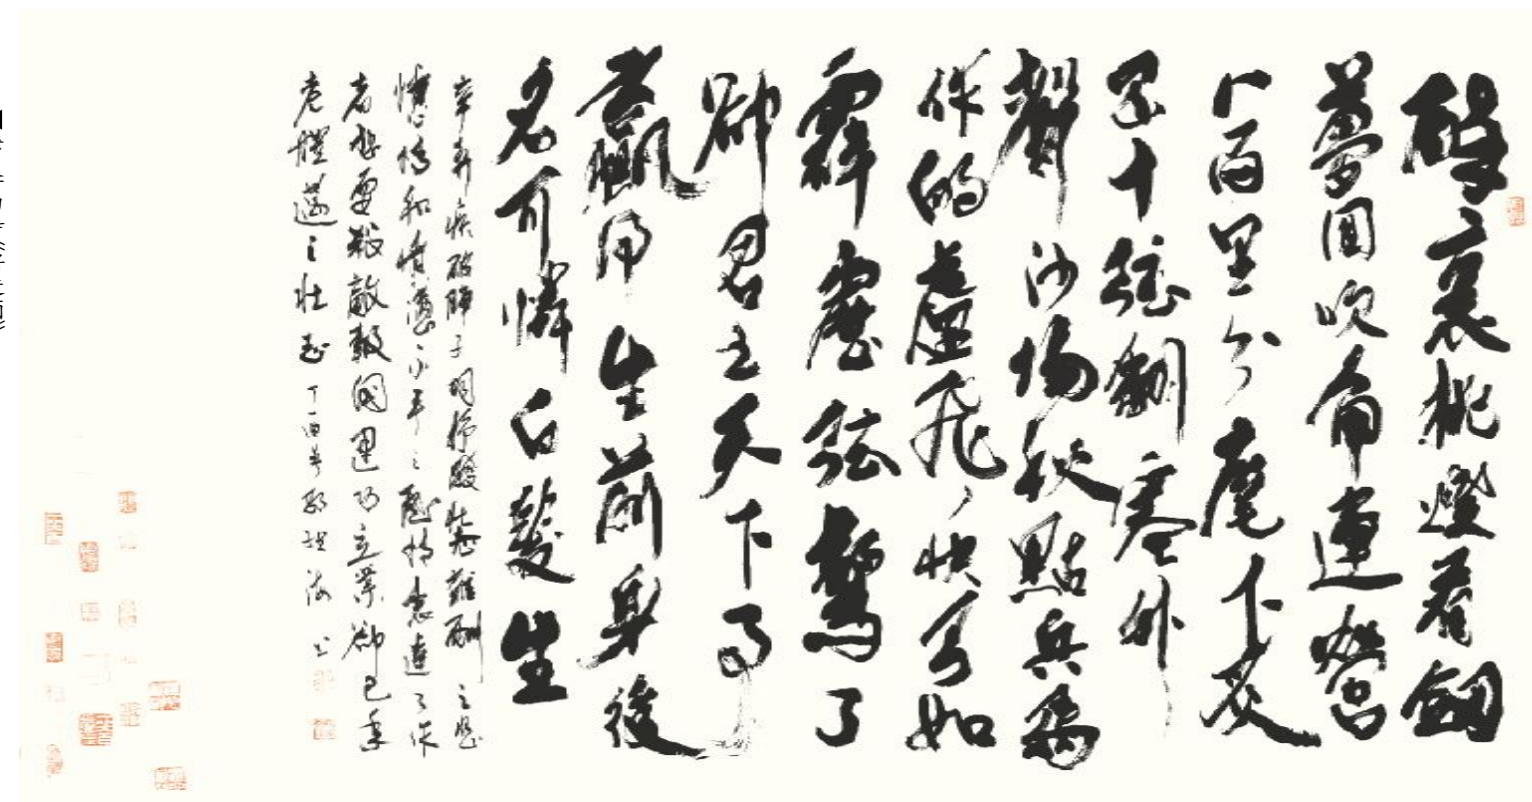 醉裏挑燈看劍
夢回吹角連營
八百里分麾下炙
五十弦翻塞外
聲沙場秋點兵馬
作的盧飛快弓如
霹靂弦驚了
卻君王天下事
贏得生前身後
名可憐白髮生
辛棄疾破陣子詞抒發壯志難酬之悲
和憤懣之情意達了作
者想要殺敵報國建功立業卻已年
老體邁之壯志丁酉年